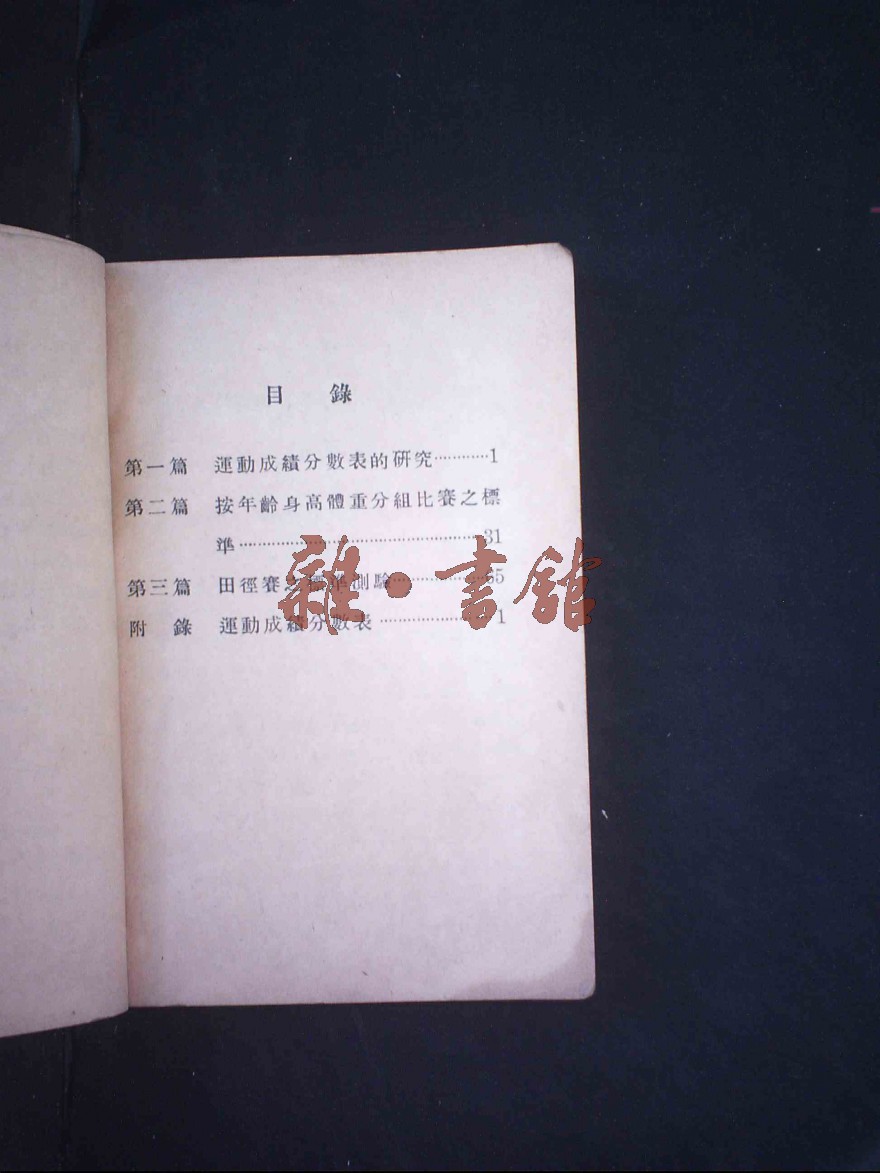 目　錄
第一篇　運動成績分數表的研究…………1
第二篇　按年齡身高體重分組比賽之標
準……………………………………………31
第三篇　田徑賽之標準測驗…………………55
附　錄　運動成績分數表…………………1
雜·書館